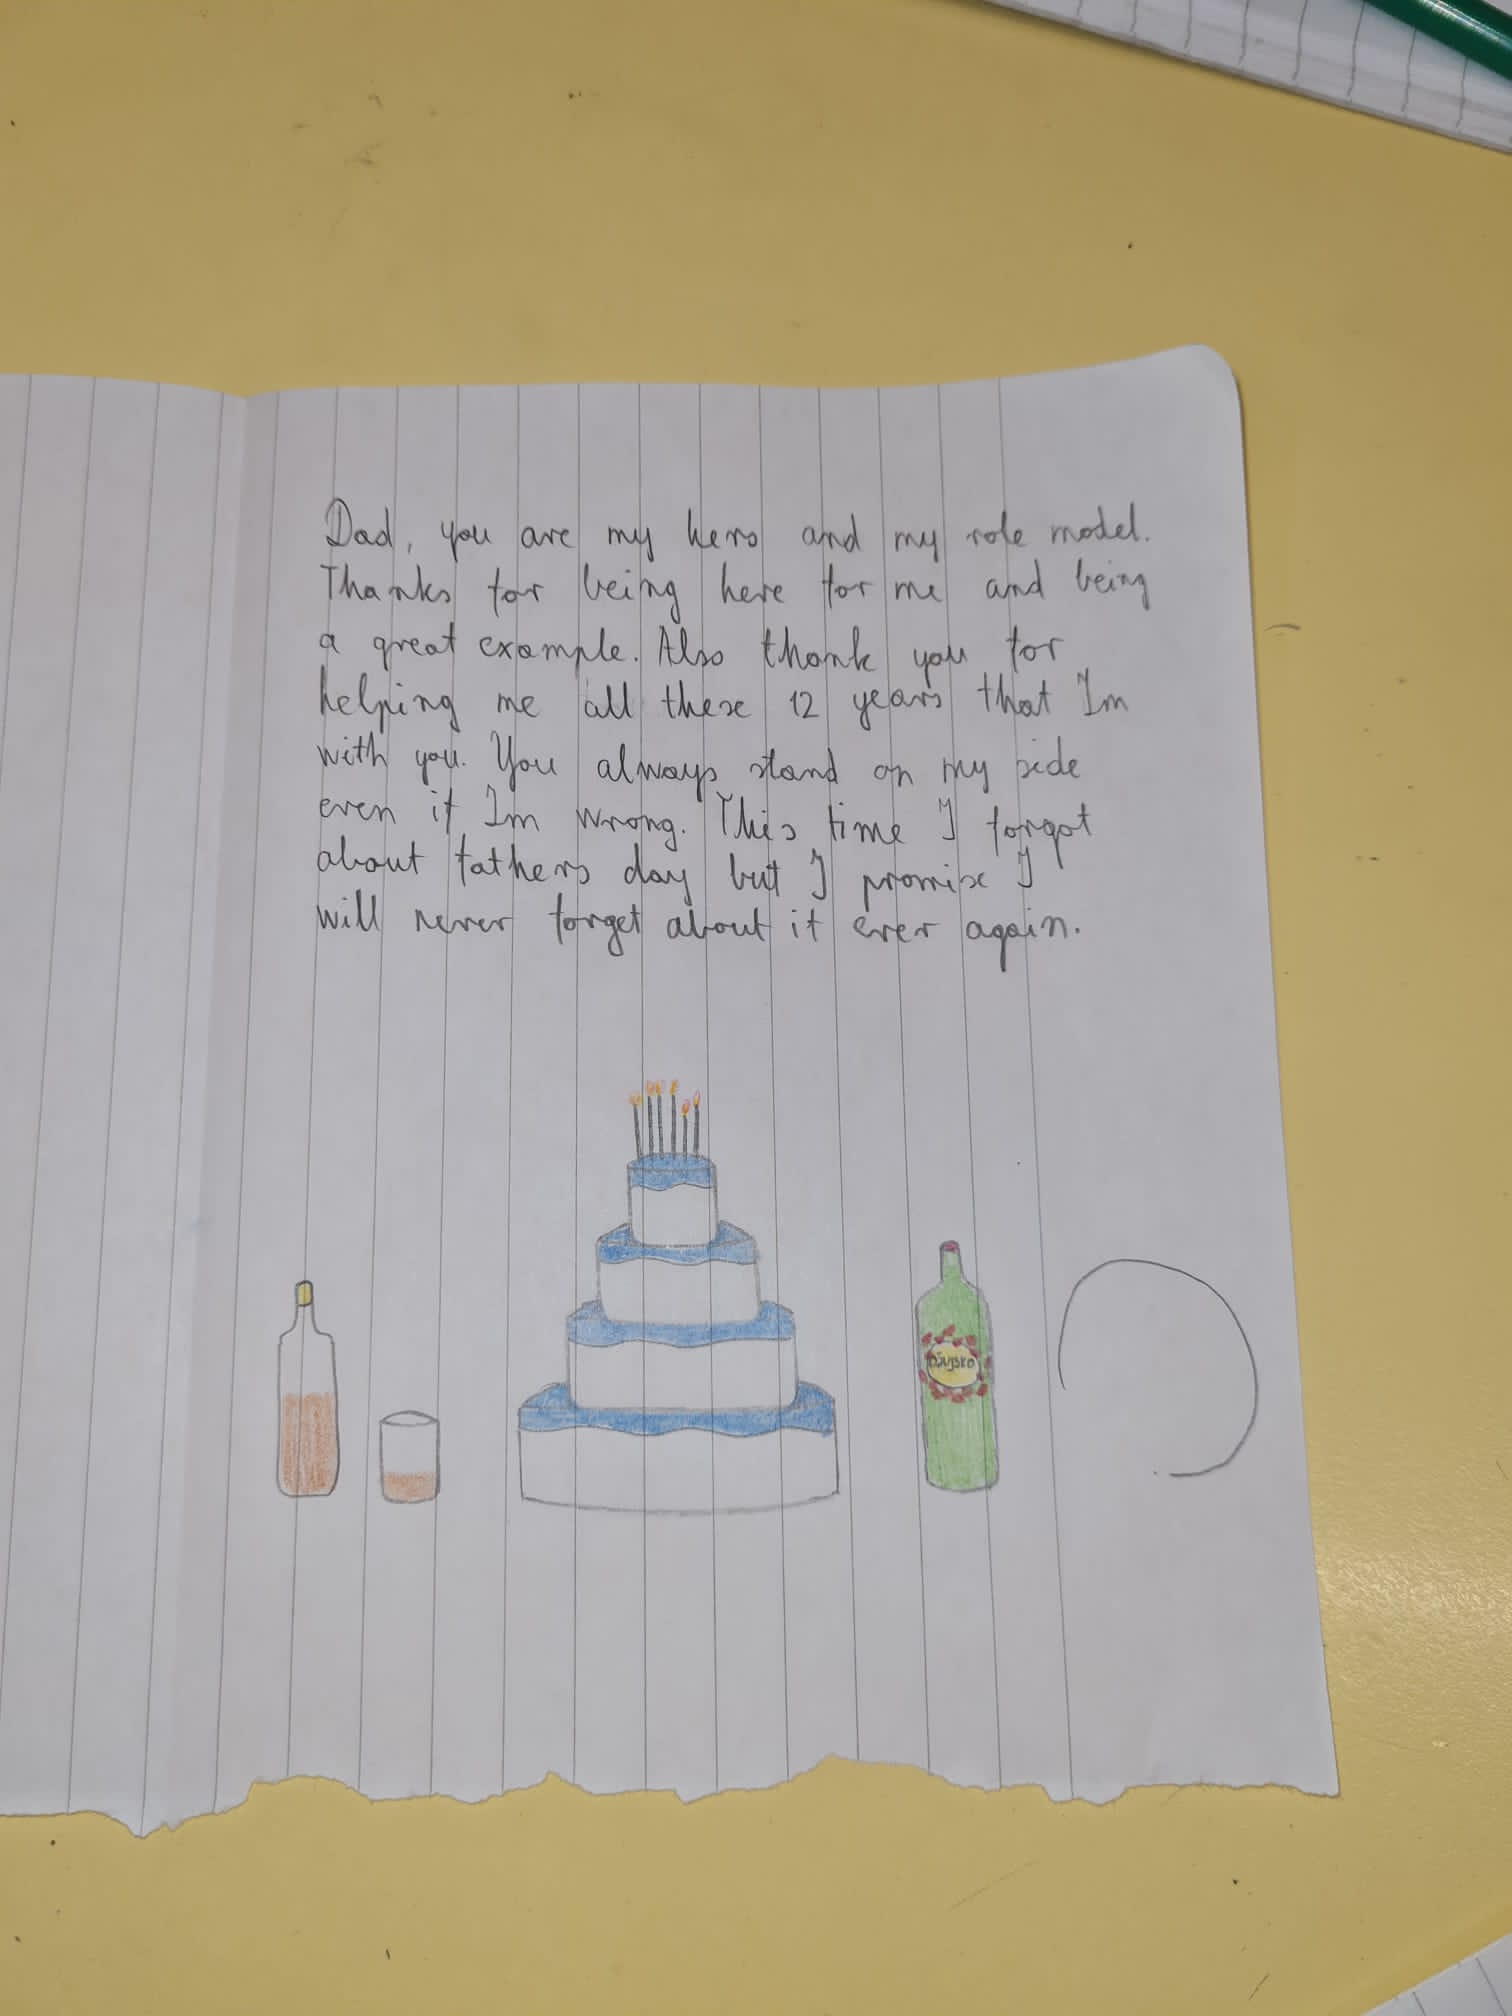 Dad, you are my hero and my role model.
Thanks for being here for me and being
a great example. Also thank you for
helping me all these 12 years that Im
with you. You always stand on my side
even if Im wrong. This time I forgot
about fathers day but I promise I
will never forget about it ever again.
OŽUJSKO